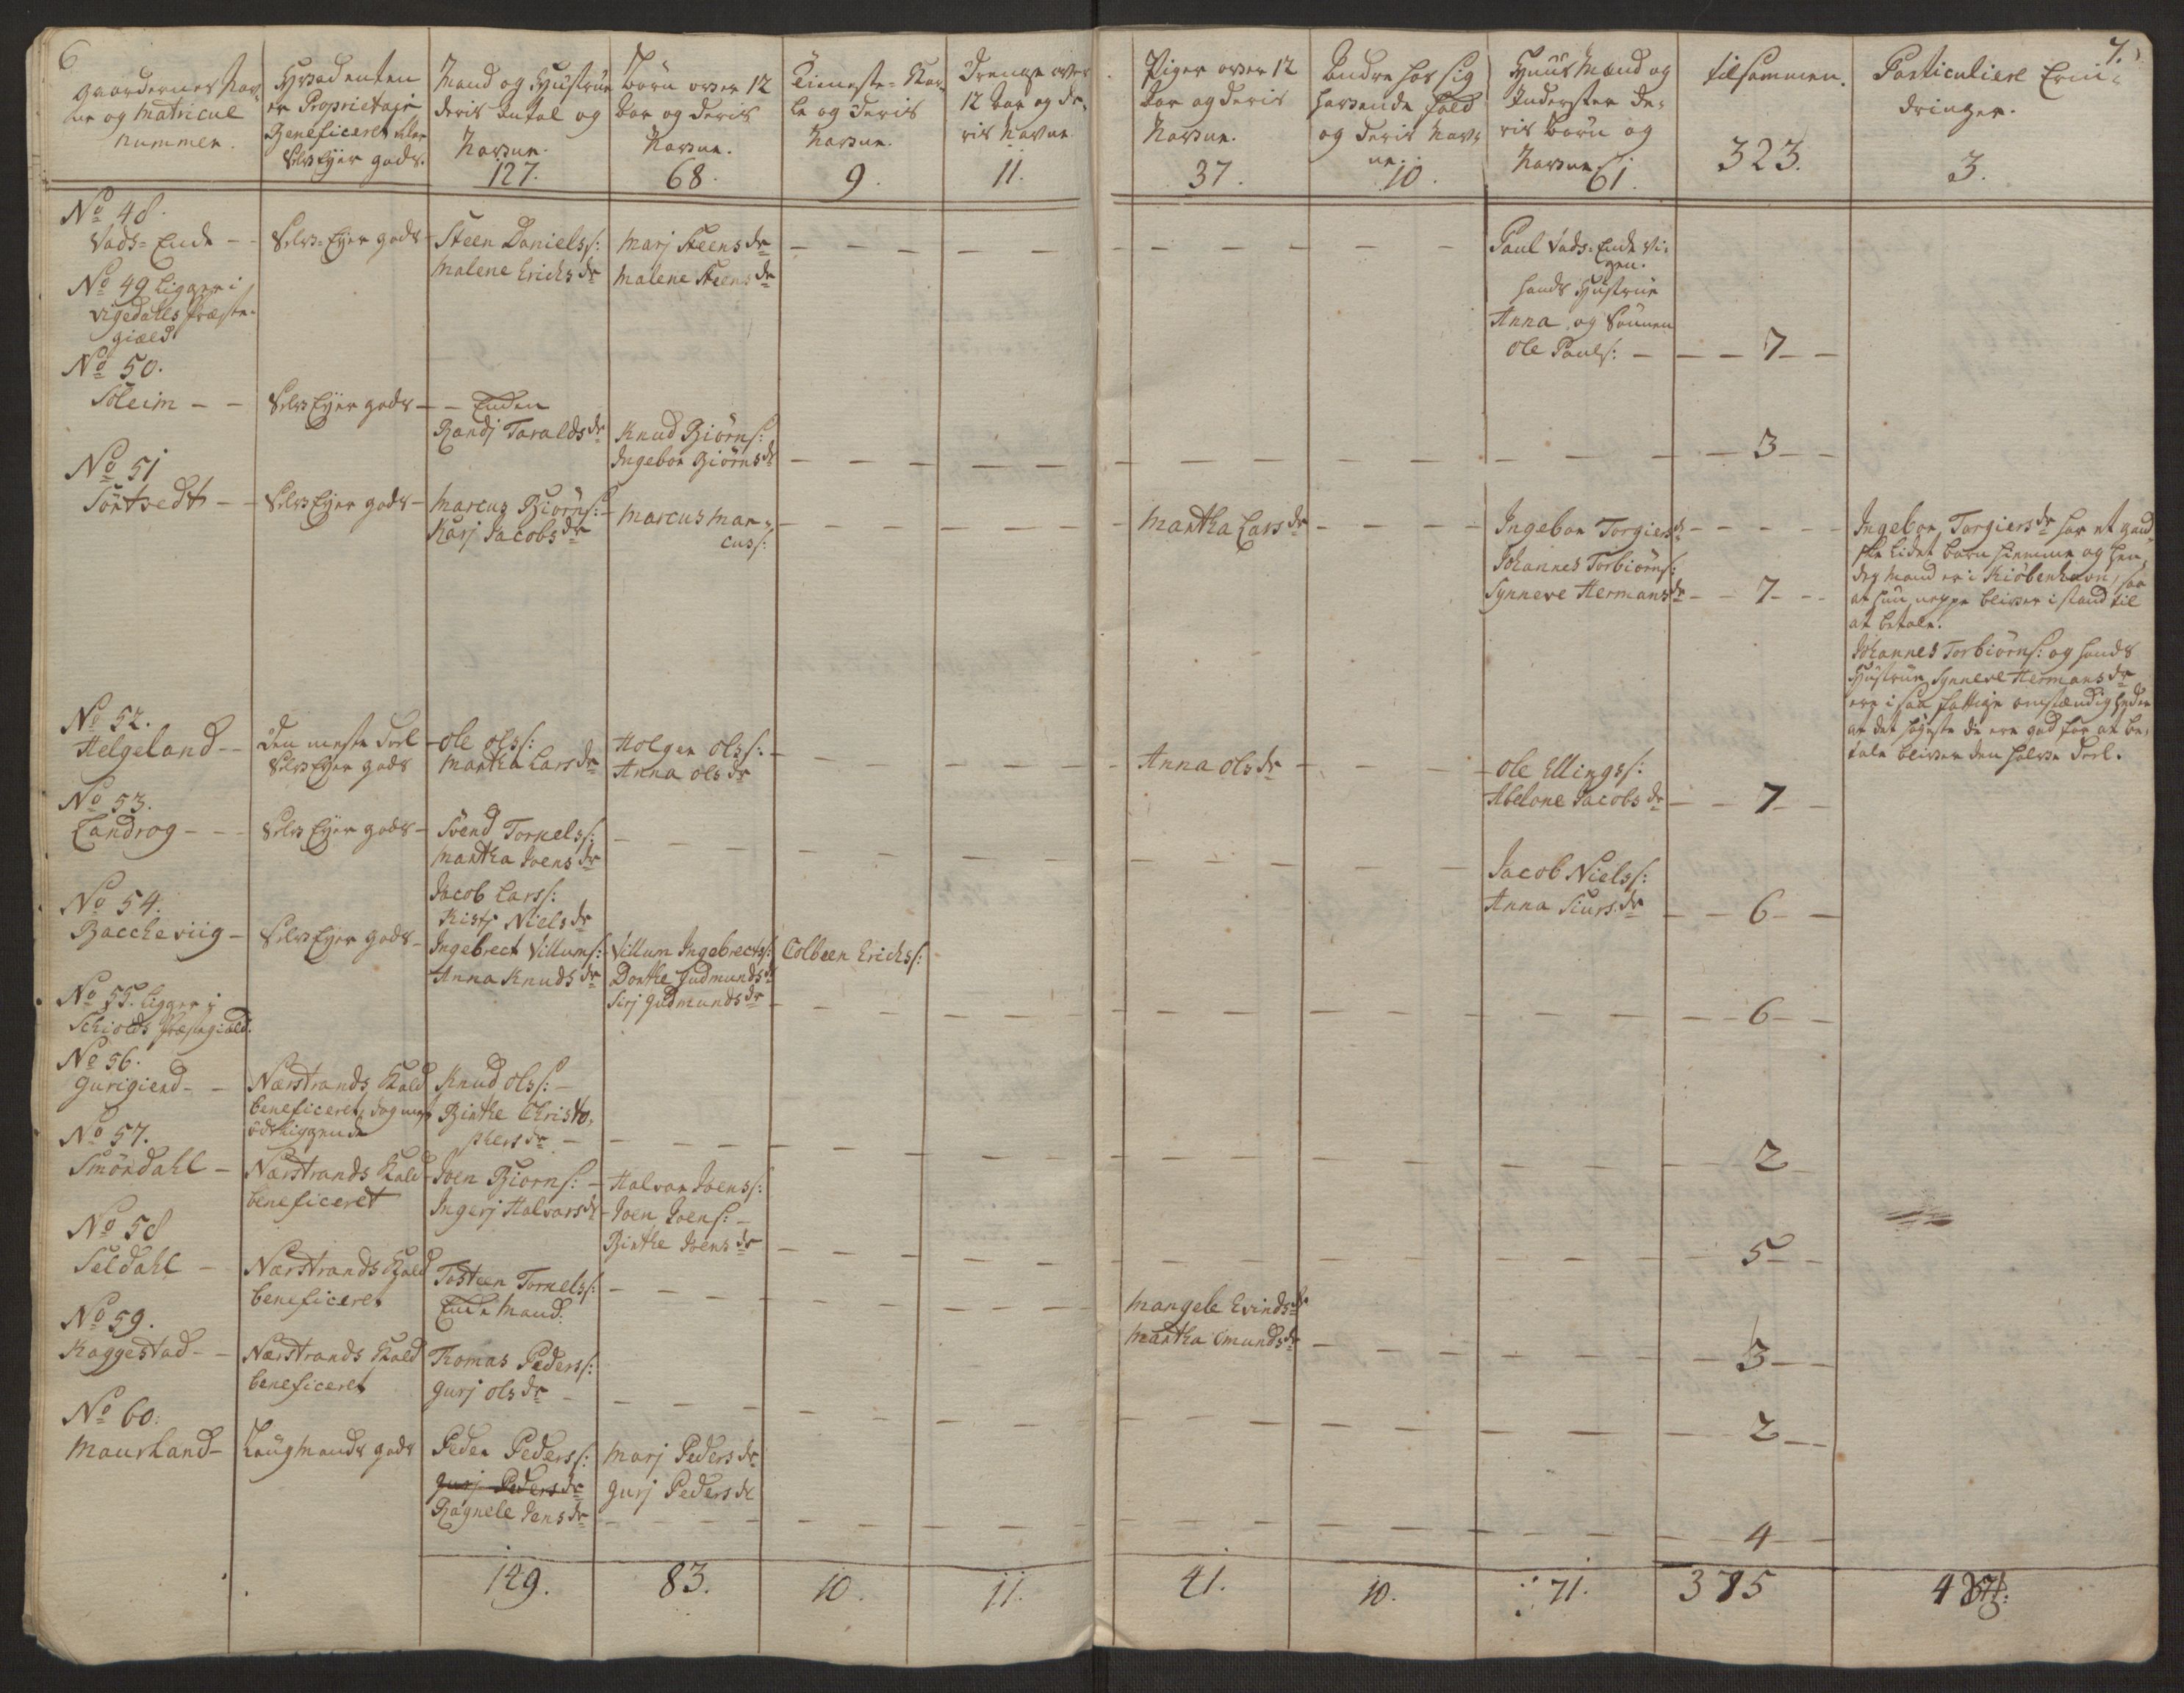 6
7.
Gaardernes Nav-
ne og Matricul
Nummer.
Hvad enten
er Proprietair
Beneficeret eller
SelvEyer gods.
Mand og Hustrue
deris Antal og
Navne.
127.
Børn over 12
Aar og deris
Navne.
68.
Tieneste-Kar-
le og deris
Navne.
9.
Drenge over
12 Aar og de-
ris Navne
11.
Piger over 12
Aar og deris
Navne.
37.
Andre hos sig
havende Fold
og deris Nav-
ne.
10.
Huus Mænd og
Inderster de-
ris Børn og
Navne
61.
tilsammen.
323.
Particuliere Erin-
dringer.
3.
No 48.
Vads-Ende - -
Selv-Eyer gods -
Steen Daniels s:
Malene Erichs dr
Marj Steens dr
Malene Steens dr
Paul Vads-Ende Vi-
gen.
hands Hustrue
Anna og Sønnen
Ole Pauls: -
7
No 49 ligger i
Vigedahls Præste-
giæld
No 50.
Soleim - -
SelvEyer gods -
- Enken
Randj Taralds dr
Knud Biørns:
Ingebor Biørns dr
3
No 51
Törtvedt - -
SelvEyer gods -
Marcus Biörns: -
Karj Jacobs dr
Marcus Mar-
cus s:
Martha Lars dr
Ingebor Torgiers dr
Johannes Torbiörns:
Synneve Hermans dr
7
Ingebor Torgiers dr har et gand
ske lidet barn hiemme og hen-
des Mand er i Kiöbenhavn, saa
at hun neppe bliver i stand til
at betale.
Johannes Torbiörns: og hands
Hustrue Synneve Hermans dr
ere i saa fattige omstændigheder
at det høyeste de ere god for at be-
tale bliver den halve Deel.
No 52.
Helgeland - -
Den meste Deel
SelvEyer gods
Ole Ols s:
Martha Lars dr
Holger Ols s:
Anna Ols dr
Anna Ols dr
Ole Ellings s:
Abelone Jacobs dr
7
No 53.
Landrog - - -
SelvEyer gods -
Svend Torkels s:
Martha Joens dr
Jacob Lars s:
Kistj Niels dr
Jacob Niels s:
Anna Siurs dr
6
No 54.
Baccheviig -
SelvEyer gods -
Ingebrect Villums:
Anna Knuds dr
Villum Ingebrects s:
Dorthe Gudmunds dr
Sirj Gudmunds dr
Colbeen Erichs s:
6
No 55. ligger i
Schiolds Præstegiæld.
No 56.
Gurigierd - -
Nerstrands Kald
beneficeret, dog mest
ödeliggende
Knud Ols s: -
Birthe Christo-
phers dr -
2
No 57.
Smördahl -
Nerstrands Kald
beneficeret
Joen Biorns: -
Ingerj Halvors dr
Halvor Joens s:
Joen Joens: -
Birthe Joens dr
5
No 58
Seldahl -
Nerstrands Kald
beneficeret
Tosteen Torkels s:
Enke Mand.
Mangele Evinds dr
Martha Omunds dr
3
No 59.
Kaggestad - -
Nerstrands Kald
beneficeret
Thomas Peders s:
Gurj Ols dr -
2
No 60.
Mausland -
Laugmands gods
Peder Peders s:
Gurj Peders dr
Ragnele Jens dr
Marj Peders dr
Gurj Peders dr
4
149.
83.
10.
11.
41.
10.
71.
375
4